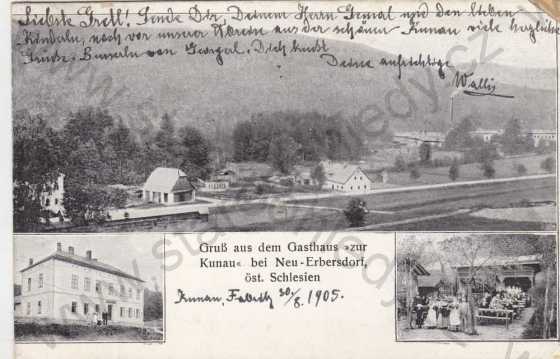 Liebste Gretl! Sende Dir, Deinem Herrn Gemal und den lieben
Kinderln, noch vor unserer Abreise aus der schönen Kunau viele herzliche
Grüße. Busserln von Georgerl. Dich küsst
Deine aufrichtige
Wallis
Gruß aus dem Gasthaus »zur
Kunau« bei Neu-Erbersdorf,
öst. Schlesien
Kunau, Fabrik 30/8. 1905.